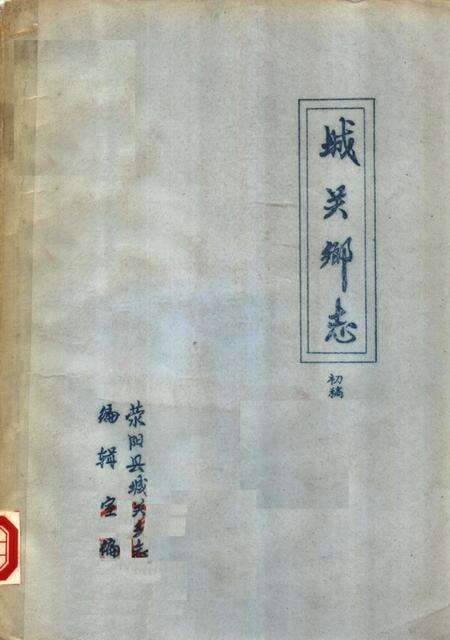 城关鄉志
初稿
荥阳县城关乡志
编辑室编